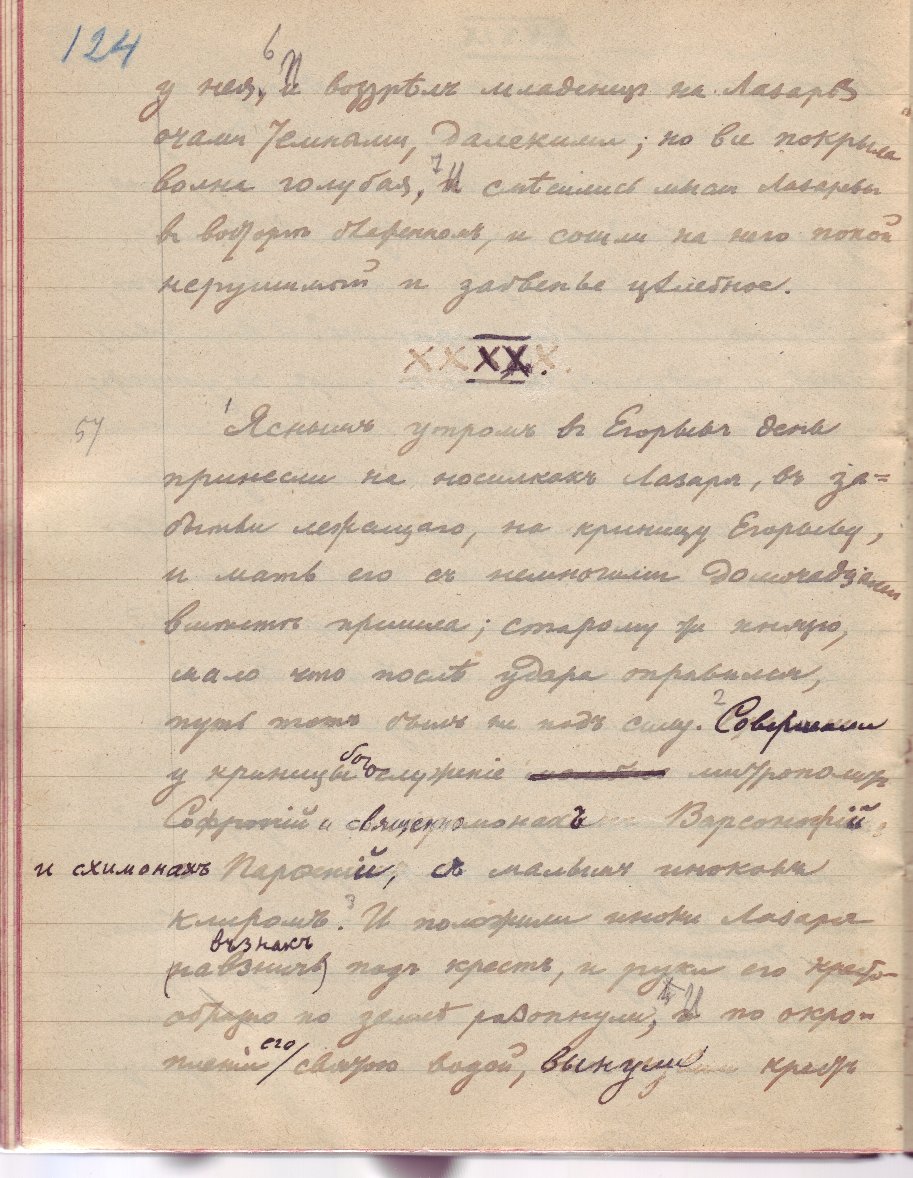 124
у нея, 6 И воззрѣлъ младенецъ на Лазаря
очами темными, далекими; но все покрыла
волна голубая, 7 И смѣсились мысли Лазаревы
въ сошли на него покой
нерушимый и забвенье цѣлебное.
XXXXX.
57
1 Яснымъ утромъ въ Егорьевъ день
принесли на носилкахъ Лазаря, въ за-
бытьи лежащаго, на криницу Егорьеву,
и мать его съ немногими домочадцами
вмѣстѣ пришла; старому же князю,
мало что послѣ удара оправился,
путь тотъ былъ не подъ силу. 2 Совершали
у криницы богослуженіе митрополитъ
Софроній и священномонахъ Варсонофій
и схимонахъ Парѳеній, съ малымъ иноковъ
клиромъ. 3 И положили иноки Лазаря
възнакъ
(навзничь) подъ крестъ, и руки его кресто-
образно по землѣ распнули, 4 И по окро-
пленіи его святою водой, вынули крестъ